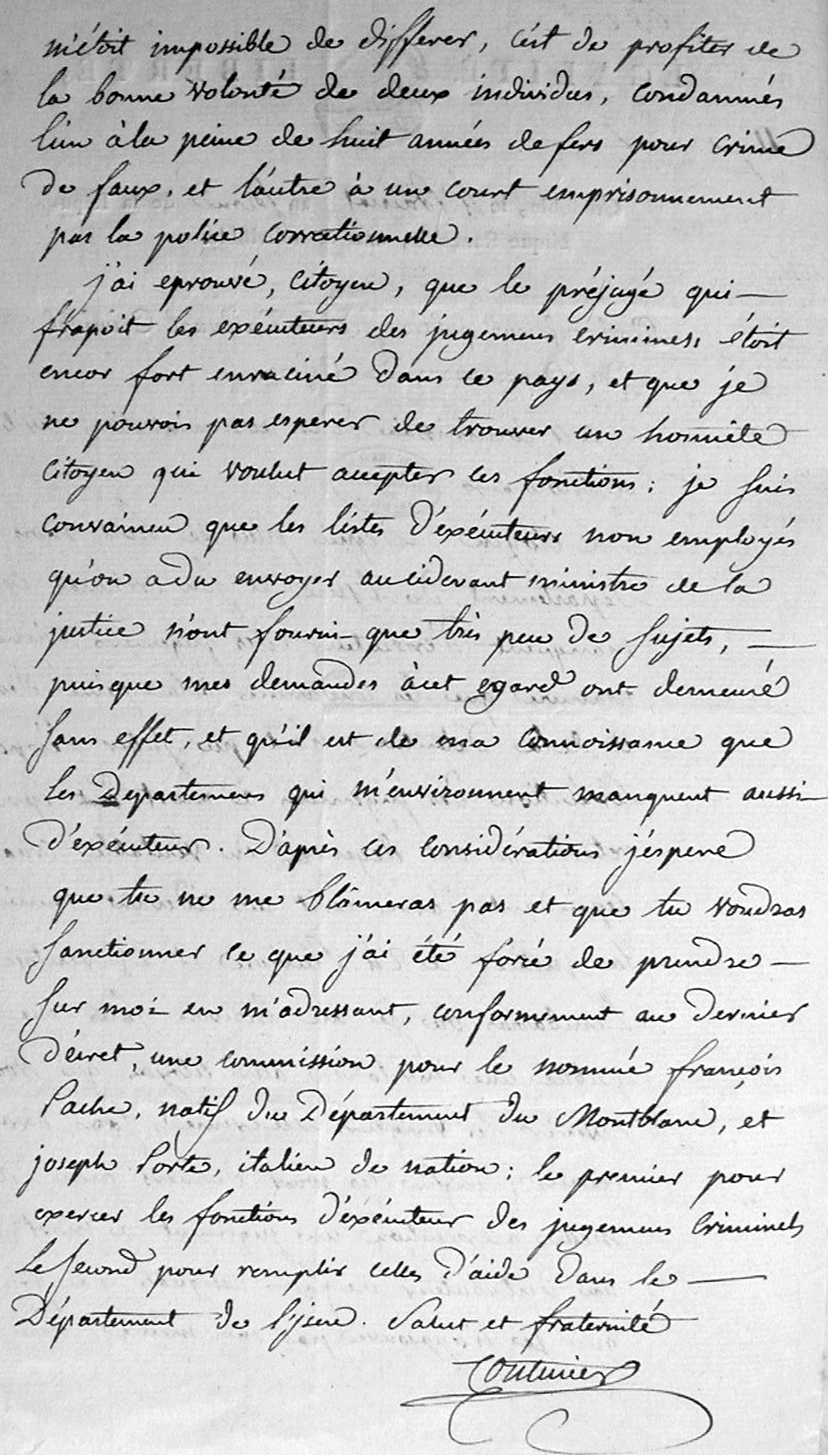 m'étoit impossible de differer, c'est de profiter de
la bonne volonté de deux individus, condamnés
l'un à la peine de huit années de fers pour crime
de faux, et l'autre à un court emprisonnement
par la police correctionnelle.
j'ai eprouvé, Citoyen, que le préjugé qui —
frapoit les exécuteurs des jugemens criminels, étoit
encor fort enraciné dans ce pays, et que je
ne pouvois pas esperer de trouver un honnête
Citoyen qui voulut accepter ces fonctions ; je suis
convaincu que les listes d'exécuteurs non employés
qu'on a du envoyer au cidevant ministre de la
justice n'ont fourni que très peu de sujets, —
puisque mes demandes à cet egard ont demeuré
sans effet, et qu'il est de ma connoissance que
les Departemens qui m'environnent manquent aussi
d'exécuteur. D'après ces considérations j'éspere
que tu ne me blâmeras pas et que tu voudras
sanctionner ce que j'ai été forcé de prendre —
sur moi en m'adressant, conformement au dernier
décret, une commission pour le nommé françois
Pache, natif du Département du Montblanc, et
joseph Porte, italien de nation ; le premier pour
exercer les fonctions d'exécuteur des jugemens Criminels
Le second pour remplir celles d'aide dans le —
Département de l'jsere. Salut et fraternité